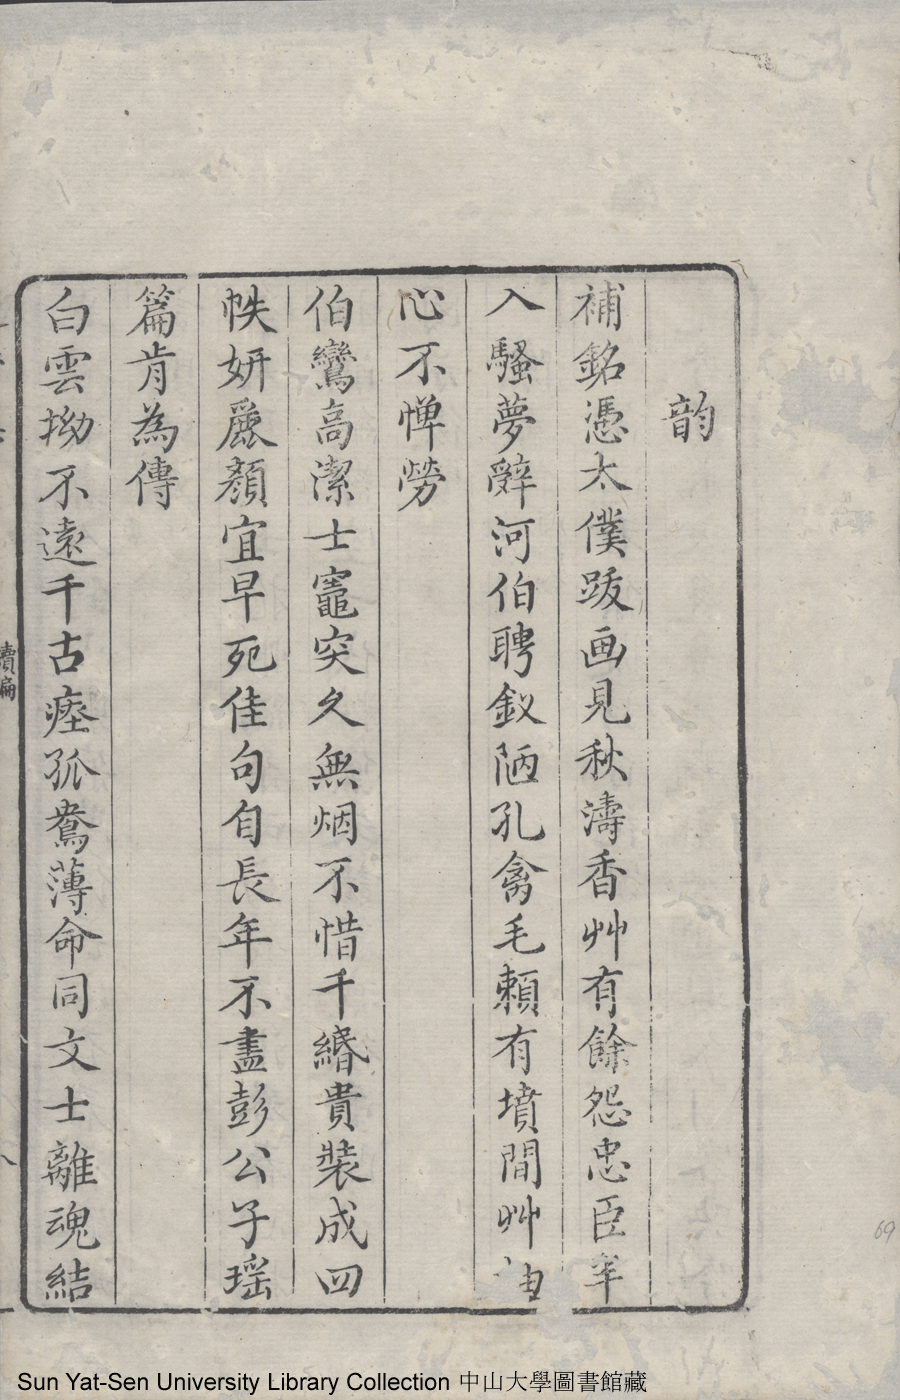 韵
補銘憑太僕跋画見秋濤香艸有餘怨忠臣半
入騷夢辭河伯聘釵陋孔禽毛賴有墳間艸抽
心不憚勞
伯鸞高潔士竈突久無烟不惜千緡貴裝成四
帙妍麗顏宜早死佳句自長年不盡彭公子瑶
篇肯為傳
白雲拗不遠千古瘞孤鴦薄命同文士離魂結
續編
八
69
Sun Yat-Sen University Library Collection 中山大學圖書館藏